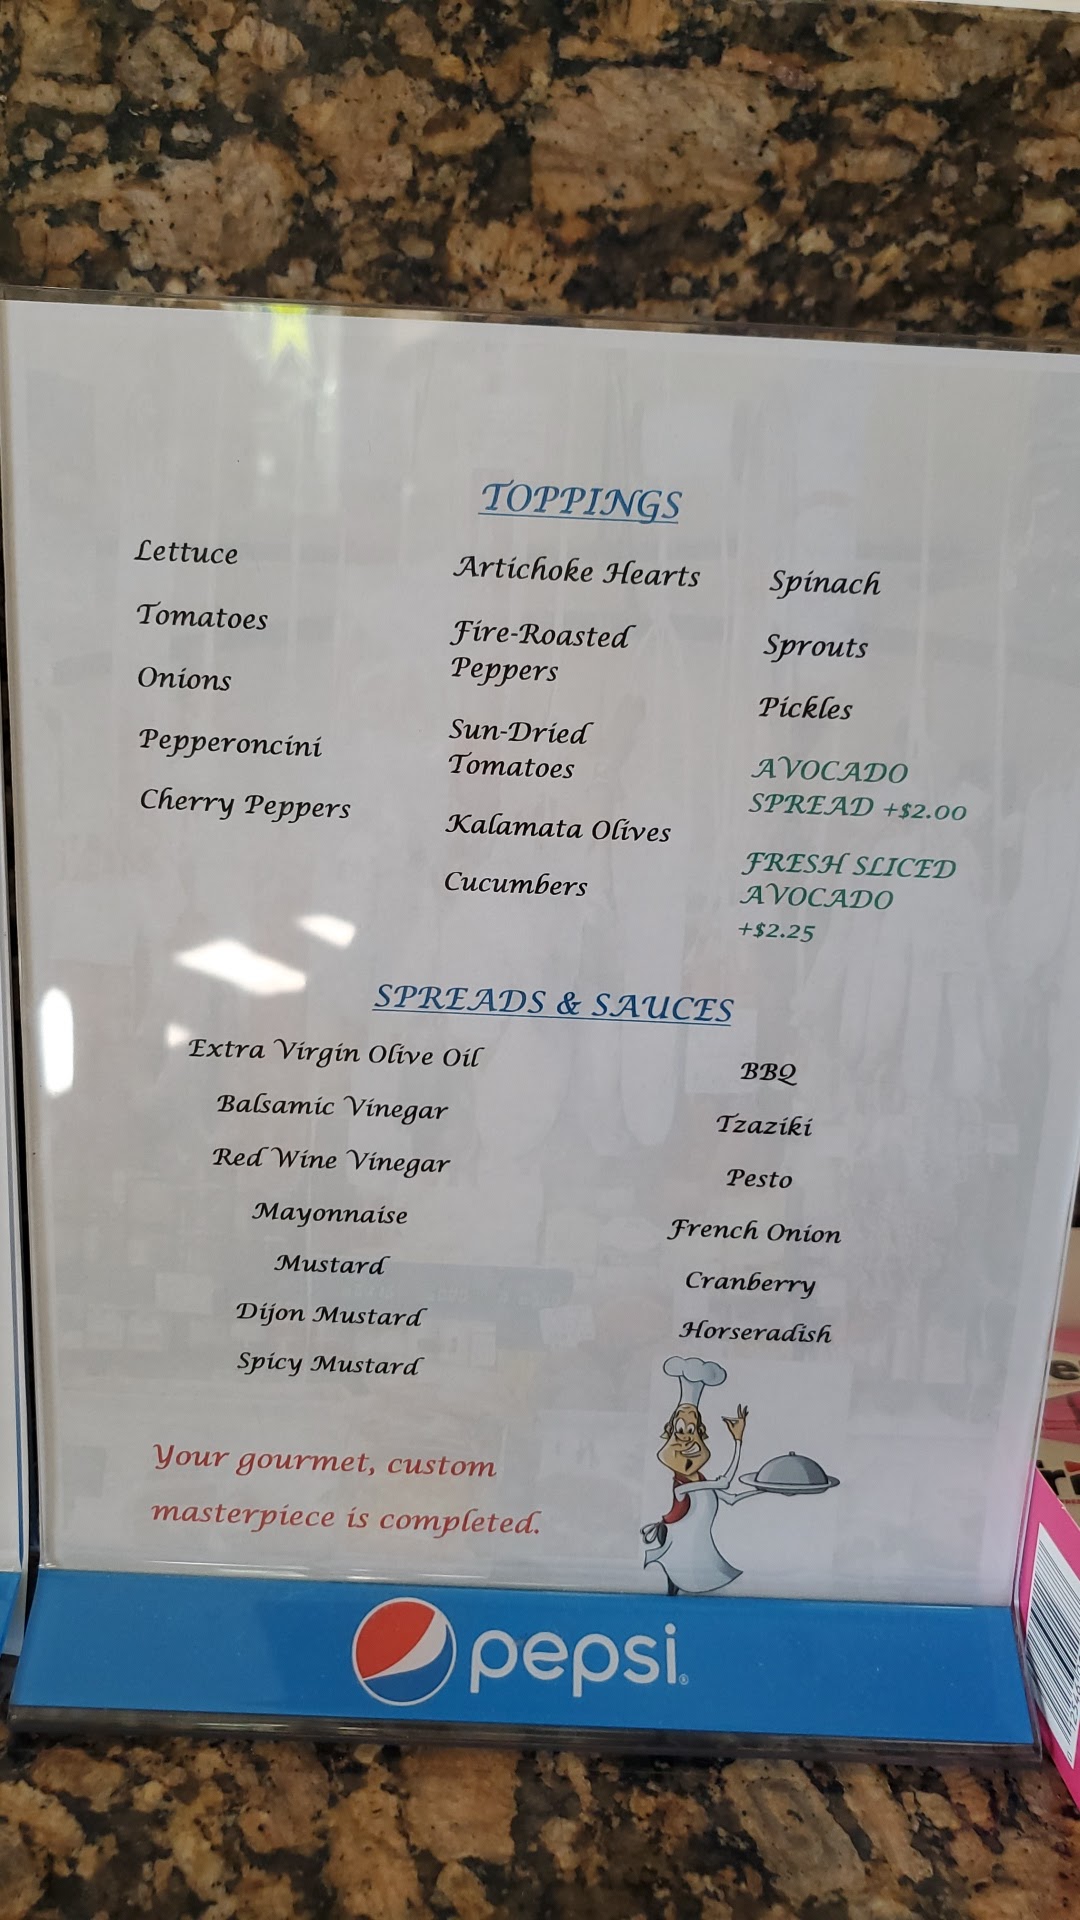 TOPPINGS
Lettuce
Tomatoes
Onions
Pepperoncini
Cherry Peppers
Artichoke Hearts
Fire-Roasted
Peppers
Sun-Dried
Tomatoes
Kalamata Olives
Cucumbers
Spinach
Sprouts
Pickles
AVOCADO
SPREAD +$2.00
FRESH SLICED
AVOCADO
+$2.25
SPREADS & SAUCES
Extra Virgin Olive Oil
Balsamic Vinegar
Red Wine Vinegar
Mayonnaise
Mustard
Dijon Mustard
Spicy Mustard
BBQ
Tzaziki
Pesto
French Onion
Cranberry
Horseradish
Your gourmet, custom
masterpiece is completed.
pepsi